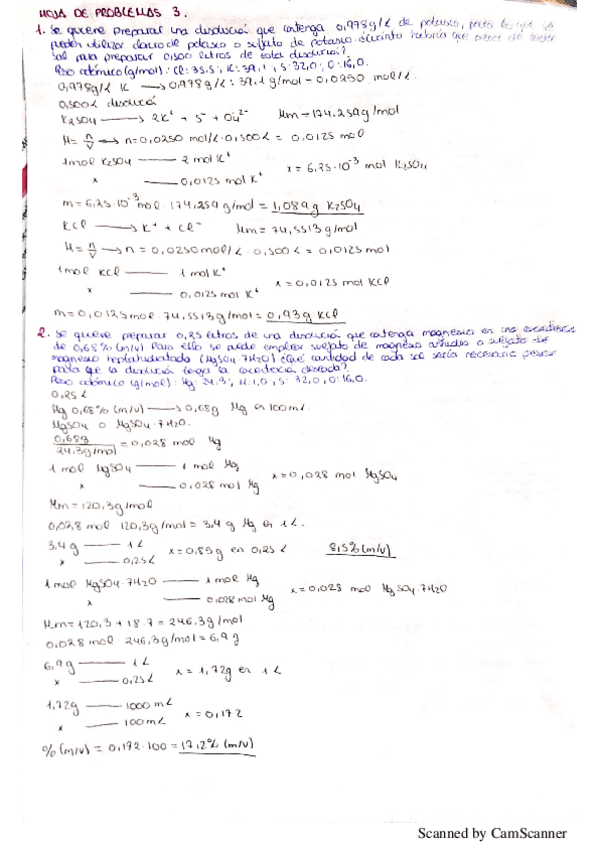 HOJA DE PROBLEMAS 3.
1. Se quiere preparar una disolución que contenga 0,978g/L de potasio, para lo que se
pueden utilizar cloruro de potasio o sulfato de potasio ¿Cuánto habría que pesar de
sal para preparar 0,500 litros de esta disolución?
Peso atómico (g/mol): Cl: 35,5; K: 39,1; S: 32,0; O: 16,0.
0,978g/L K → 0,978 g/L : 39,1 g/mol = 0,0250 mol/L
0,500L disolución
K2SO4 → 2K+ + S- + O4 2- Mm = 174,259g/mol
M = n/V → n = 0,0250 mol/L · 0,500L = 0,0125 mol
1mol K2SO4 — 2 mol K+
x — 0,0125 mol K+ x = 6,25·10-3 mol K2SO4
m = 6,25·10-3 mol · 174,259 g/mol = 1,089g K2SO4
KCl → K+ + Cl- Mm = 74,5513g/mol
M = n/V → n = 0,0250 mol/L · 0,500L = 0,0125 mol
1mol KCl — 1 mol K+
x — 0,0125 mol K+ x = 0,0125 mol KCl
m = 0,0125mol · 74,5513g/mol = 0,93g KCl
2. Se quiere preparar 0,25 litros de una disolución que contenga magnesio en una
de 0,68% (m/v) Para ello se puede emplear sulfato de magnesio anhidro o sulfato de
magnesio heptahidratado (MgSO4·7H2O) ¿Qué cantidad de cada sal sería necesario pesar
para que la disolución tenga la deseada?
Peso atómico (g/mol): Mg: 24,3; H: 1,0; S: 32,0; O: 16,0.
0,25L
Mg 0,68% (m/v) → 0,68g Mg en 100mL.
MgSO4 o MgSO4·7H2O.
0,68g / 24,3g/mol = 0,028 mol Mg
1 mol MgSO4 — 1 mol Mg
x — 0,028 mol Mg x = 0,028 mol MgSO4
Mm = 120,3g/mol
0,028 mol · 120,3g/mol = 3,4 g Mg en 1L.
3,4g — 1L
x — 0,25L x = 0,85g en 0,25L 8,5% (m/v)
1 mol MgSO4·7H2O — 1 mol Mg
x — 0,028 mol Mg x = 0,028 mol MgSO4·7H2O
Mm = 120,3 + 18·7 = 246,3g/mol
0,028 mol · 246,3g/mol = 6,9 g
6,9g — 1L
x — 0,25L x = 1,72g en 1L
1,72g — 1000mL
x — 100mL x = 0,172
% (m/v) = 0,172·100 = 17,2% (m/v)
Scanned by CamScanner